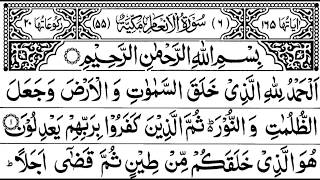 اٰيَاتُهَا ١٦٥ (٦) سُوْرَةُ الْاَنْعَامِ مَكِّيَّةٌ (٥٥) رُكُوْعَاتُهَا ٢٠
بِسْمِ اللّٰهِ الرَّحْمٰنِ الرَّحِيْمِ
اَلْحَمْدُ لِلّٰهِ الَّذِىْ خَلَقَ السَّمٰوٰتِ وَ الْاَرْضَ وَجَعَلَ
الظُّلُمٰتِ وَ النُّوْرَ ؕ ثُمَّ الَّذِيْنَ كَفَرُوْا بِرَبِّهِمْ يَعْدِلُوْنَ ۝١
هُوَ الَّذِىْ خَلَقَكُمْ مِّنْ طِيْنٍ ثُمَّ قَضٰٓى اَجَلًا ؕ